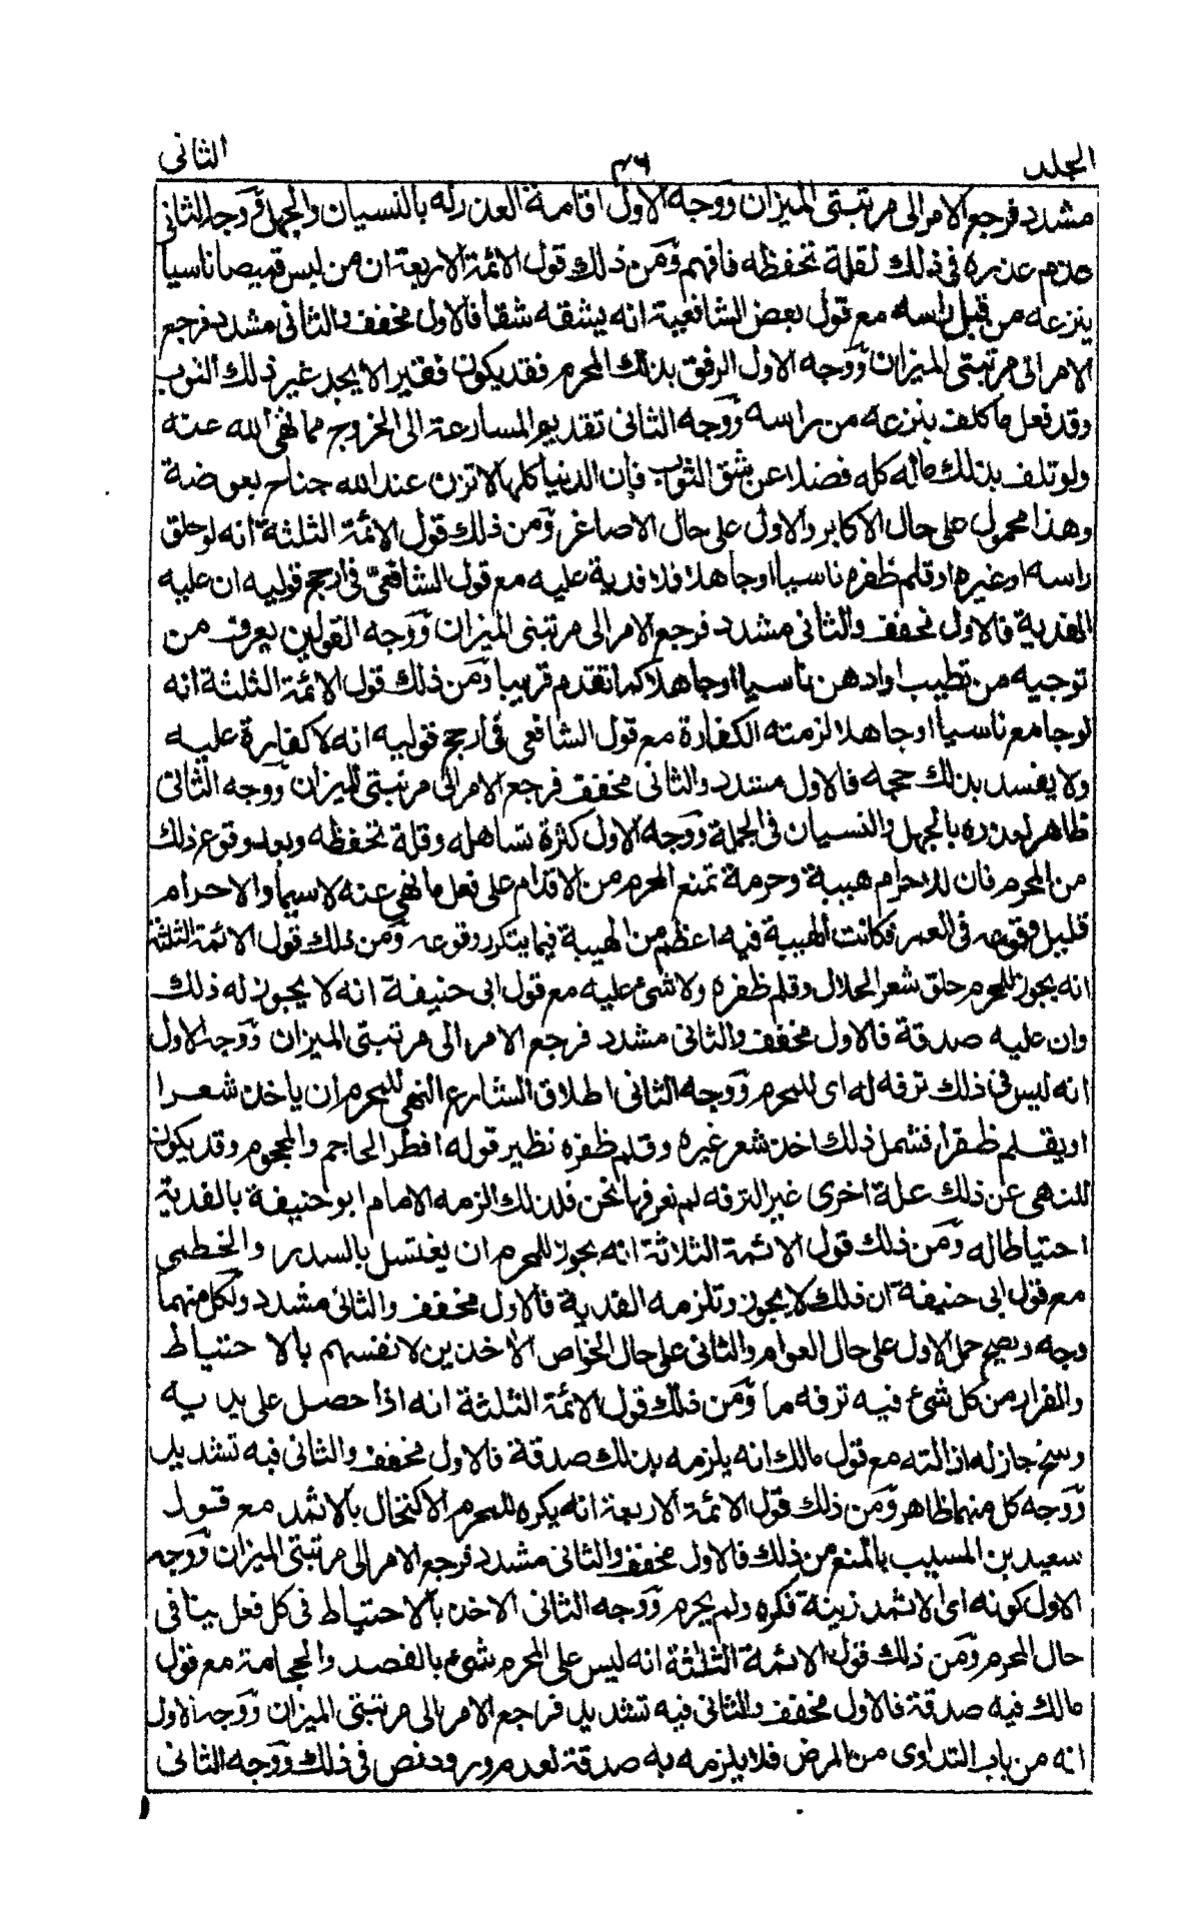 المجلد ٤٦ الثانى
مشدد فرجع الامر الى مرتبتى الميزان ووجه الاول اقامة العذر له بالنسيان والجهل ووجه الثانى
عدم عذره فى ذلك لقلة تحفظه فافهم ومن ذلك قول الائمة الاربعة ان من لبس قميصا ناسيا
ينزعه من قبل راسه مع قول بعض الشافعية انه يشقه شقا فالاول مخفف والثانى مشدد فرجع
الامر الى مرتبتى الميزان ووجه الاول الرفق بذلك المحرم فقد يكون فقيرا لا يجد غير ذلك الثوب
وقد فعل ما كلف بنزعه من راسه ووجه الثانى تقديم المسارعة الى الخروج مما نهى الله عنه
ولو تلف بذلك ماله كله فضلا عن شق الثوب فان الدنيا كلها لا تزن عند الله جناح بعوضة
وهذا محمول على حال الاكابر والاول على حال الاصاغر ومن ذلك قول الائمة الثلثة انه لو حلق
راسه او غيره او قلم ظفره ناسيا او جاهلا فلا فدية عليه مع قول الشافعى فى ارجح قوليه ان عليه
الفدية فالاول مخفف والثانى مشدد فرجع الامر الى مرتبتى الميزان ووجه القولين يعرف من
توجيه من تطيب او ادهن ناسيا او جاهلا كما تقدم قريبا ومن ذلك قول الائمة الثلثة انه
لو جامع ناسيا او جاهلا لزمته الكفارة مع قول الشافعى فى ارجح قوليه انه لا كفارة عليه
ولا يفسد بذلك حجه فالاول مشدد والثانى مخفف فرجع الامر الى مرتبتى الميزان ووجه الثانى
ظاهر لعذره بالجهل والنسيان فى الجملة ووجه الاول كثرة تساهله وقلة تحفظه وبعد وقوع ذلك
من المحرم فان للاحرام هيبة وحرمة تمنع المحرم من الاقدام على فعل ما نهى عنه لا سيما والاحرام
قليل وقوعه فى العمر فكانت الهيبة فيه اعظم من الهيبة فيما يتكرر وقوعه ومن ذلك قول الائمة الثلثة
انه يجوز للمحرم حلق شعر الحلال وقلم ظفره ولا شئ عليه مع قول ابى حنيفة انه لا يجوز له ذلك
وان عليه صدقة فالاول مخفف والثانى مشدد فرجع الامر الى مرتبتى الميزان ووجه الاول
انه ليس فى ذلك ترفه له اى للمحرم ووجه الثانى اطلاق الشارع النهى للمحرم ان ياخذ شعرا
او يقلم ظفرا فشمل ذلك اخذ شعر غيره وقلم ظفره نظير قوله افطر الحاجم والمحجوم وقد يكون
للنهى عن ذلك علة اخرى غير الترفه لم نعرفها نحن فلذلك الزمه الامام ابو حنيفة بالفدية
احتياطا له ومن ذلك قول الائمة الثلاثة انه يجوز للمحرم ان يغتسل بالسدر والخطمى
مع قول ابى حنيفة ان ذلك لا يجوز وتلزمه الفدية فالاول مخفف والثانى مشدد ولكل منهما
وجه ويصح حمل الاول على حال العوام والثانى على حال الخواص الاخذين لانفسهم بالاحتياط
والفرار من كل شئ فيه ترفه ما ومن ذلك قول الائمة الثلثة انه اذا حصل على يديه
وسخ جاز له ازالته مع قول مالك انه يلزمه بذلك صدقة فالاول مخفف والثانى فيه تشديد
ووجه كل منهما ظاهر ومن ذلك قول الائمة الاربعة انه يكره للمحرم الاكتحال بالاثمد مع قول
سعيد بن المسيب بالمنع من ذلك فالاول مخفف والثانى مشدد فرجع الامر الى مرتبتى الميزان ووجه
الاول كونه اى الاثمد زينة فكره ولم يحرم ووجه الثانى الاخذ بالاحتياط فى كل فعل ينافى
حال المحرم ومن ذلك قول الائمة الثلثة انه ليس على المحرم شئ بالفصد والحجامة مع قول
مالك فيه صدقة فالاول مخفف والثانى فيه تشديد فراجع الامر الى مرتبتى الميزان ووجه الاول
انه من باب التداوى من المرض فلا يلزمه به صدقة لعدم ورود نص فى ذلك ووجه الثانى